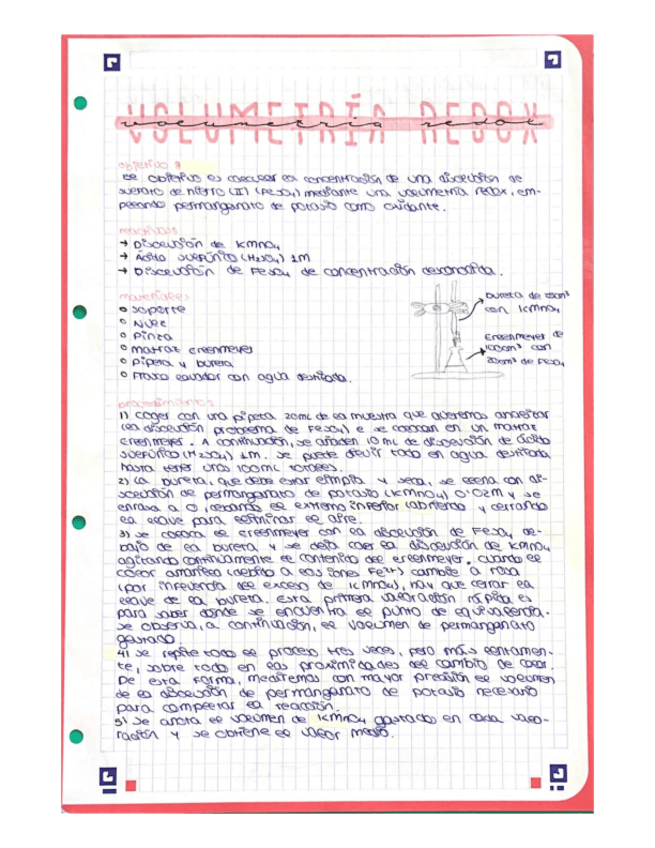 VOLUMETRÍA REDOX
volumetria redox
objetivo :
El objetivo es calcular la concentración de una disolución de
sulfato de hierro (II) (FeSO4) mediante una volumetría redox, em-
pleando permanganato de potasio como oxidante.
→ Disolución de KMnO4
→ Ácido sulfúrico (H2SO4) 1M
→ Disolución de FeSO4 de concentración desconocida.
materiales
soporte
Nuez
Pinza
matraz erlenmeyer
Pipeta y bureta
Frasco lavador con agua destilada.
bureta de
con KMnO4
Erlenmeyer de
100cm3 con
20cm3 de FeSO4
procedimiento
1) coger con una pipeta 20mL de la muestra que queremos analizar
(la disolución problema de FeSO4) y se colocan en un matraz
Erlenmeyer. A continuación, se añaden 10 mL de disolución de ácido
sulfúrico (H2SO4) 1M. Se puede diluir todo en agua destilada
hasta tener unos 100mL totales.
2) La bureta, que debe estar limpia y seca, se llena con di-
solución de permanganato de potasio (KMnO4) 0'02M y se
enrasa a 0, llenando el extremo inferior (abriendo y cerrando
la llave para eliminar el aire.
3) se coloca el erlenmeyer con la disolución de FeSO4 de-
bajo de la bureta y se deja caer la disolución de KMnO4
agitando continuamente el contenido del erlenmeyer. cuando el
color amarillo (debido a los iones Fe3+) cambie a rosa
(por influencia del exceso de KMnO4), hay que cerrar la
llave de la bureta. Esta primera valoración rápida es
para saber donde se encuentra el punto de equivalencia.
se observa, a continuación, el volumen de permanganato
gastado.
4) Se repite todo el proceso tres veces, pero más lentamen-
te, sobre todo en las proximidades del cambio de color.
De esta forma, mediremos con mayor precisión el volumen
de la disolución de permanganato de potasio necesario
para completar la reacción.
5) Se anota el volumen de KMnO4 gastado en cada valo-
ración y se obtiene el valor medio.